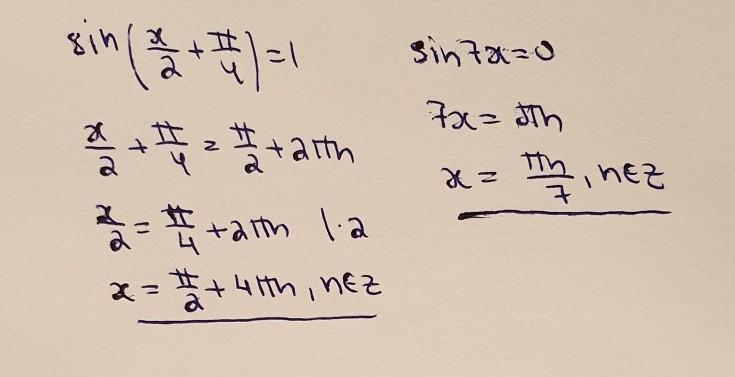 sin(x/2 + π/4) = 1
x/2 + π/4 = π/2 + 2πn
x/2 = π/4 + 2πn |·2
x = π/2 + 4πn, n∈Z
sin7x=0
7x = πn
x = πn/7, n∈Z